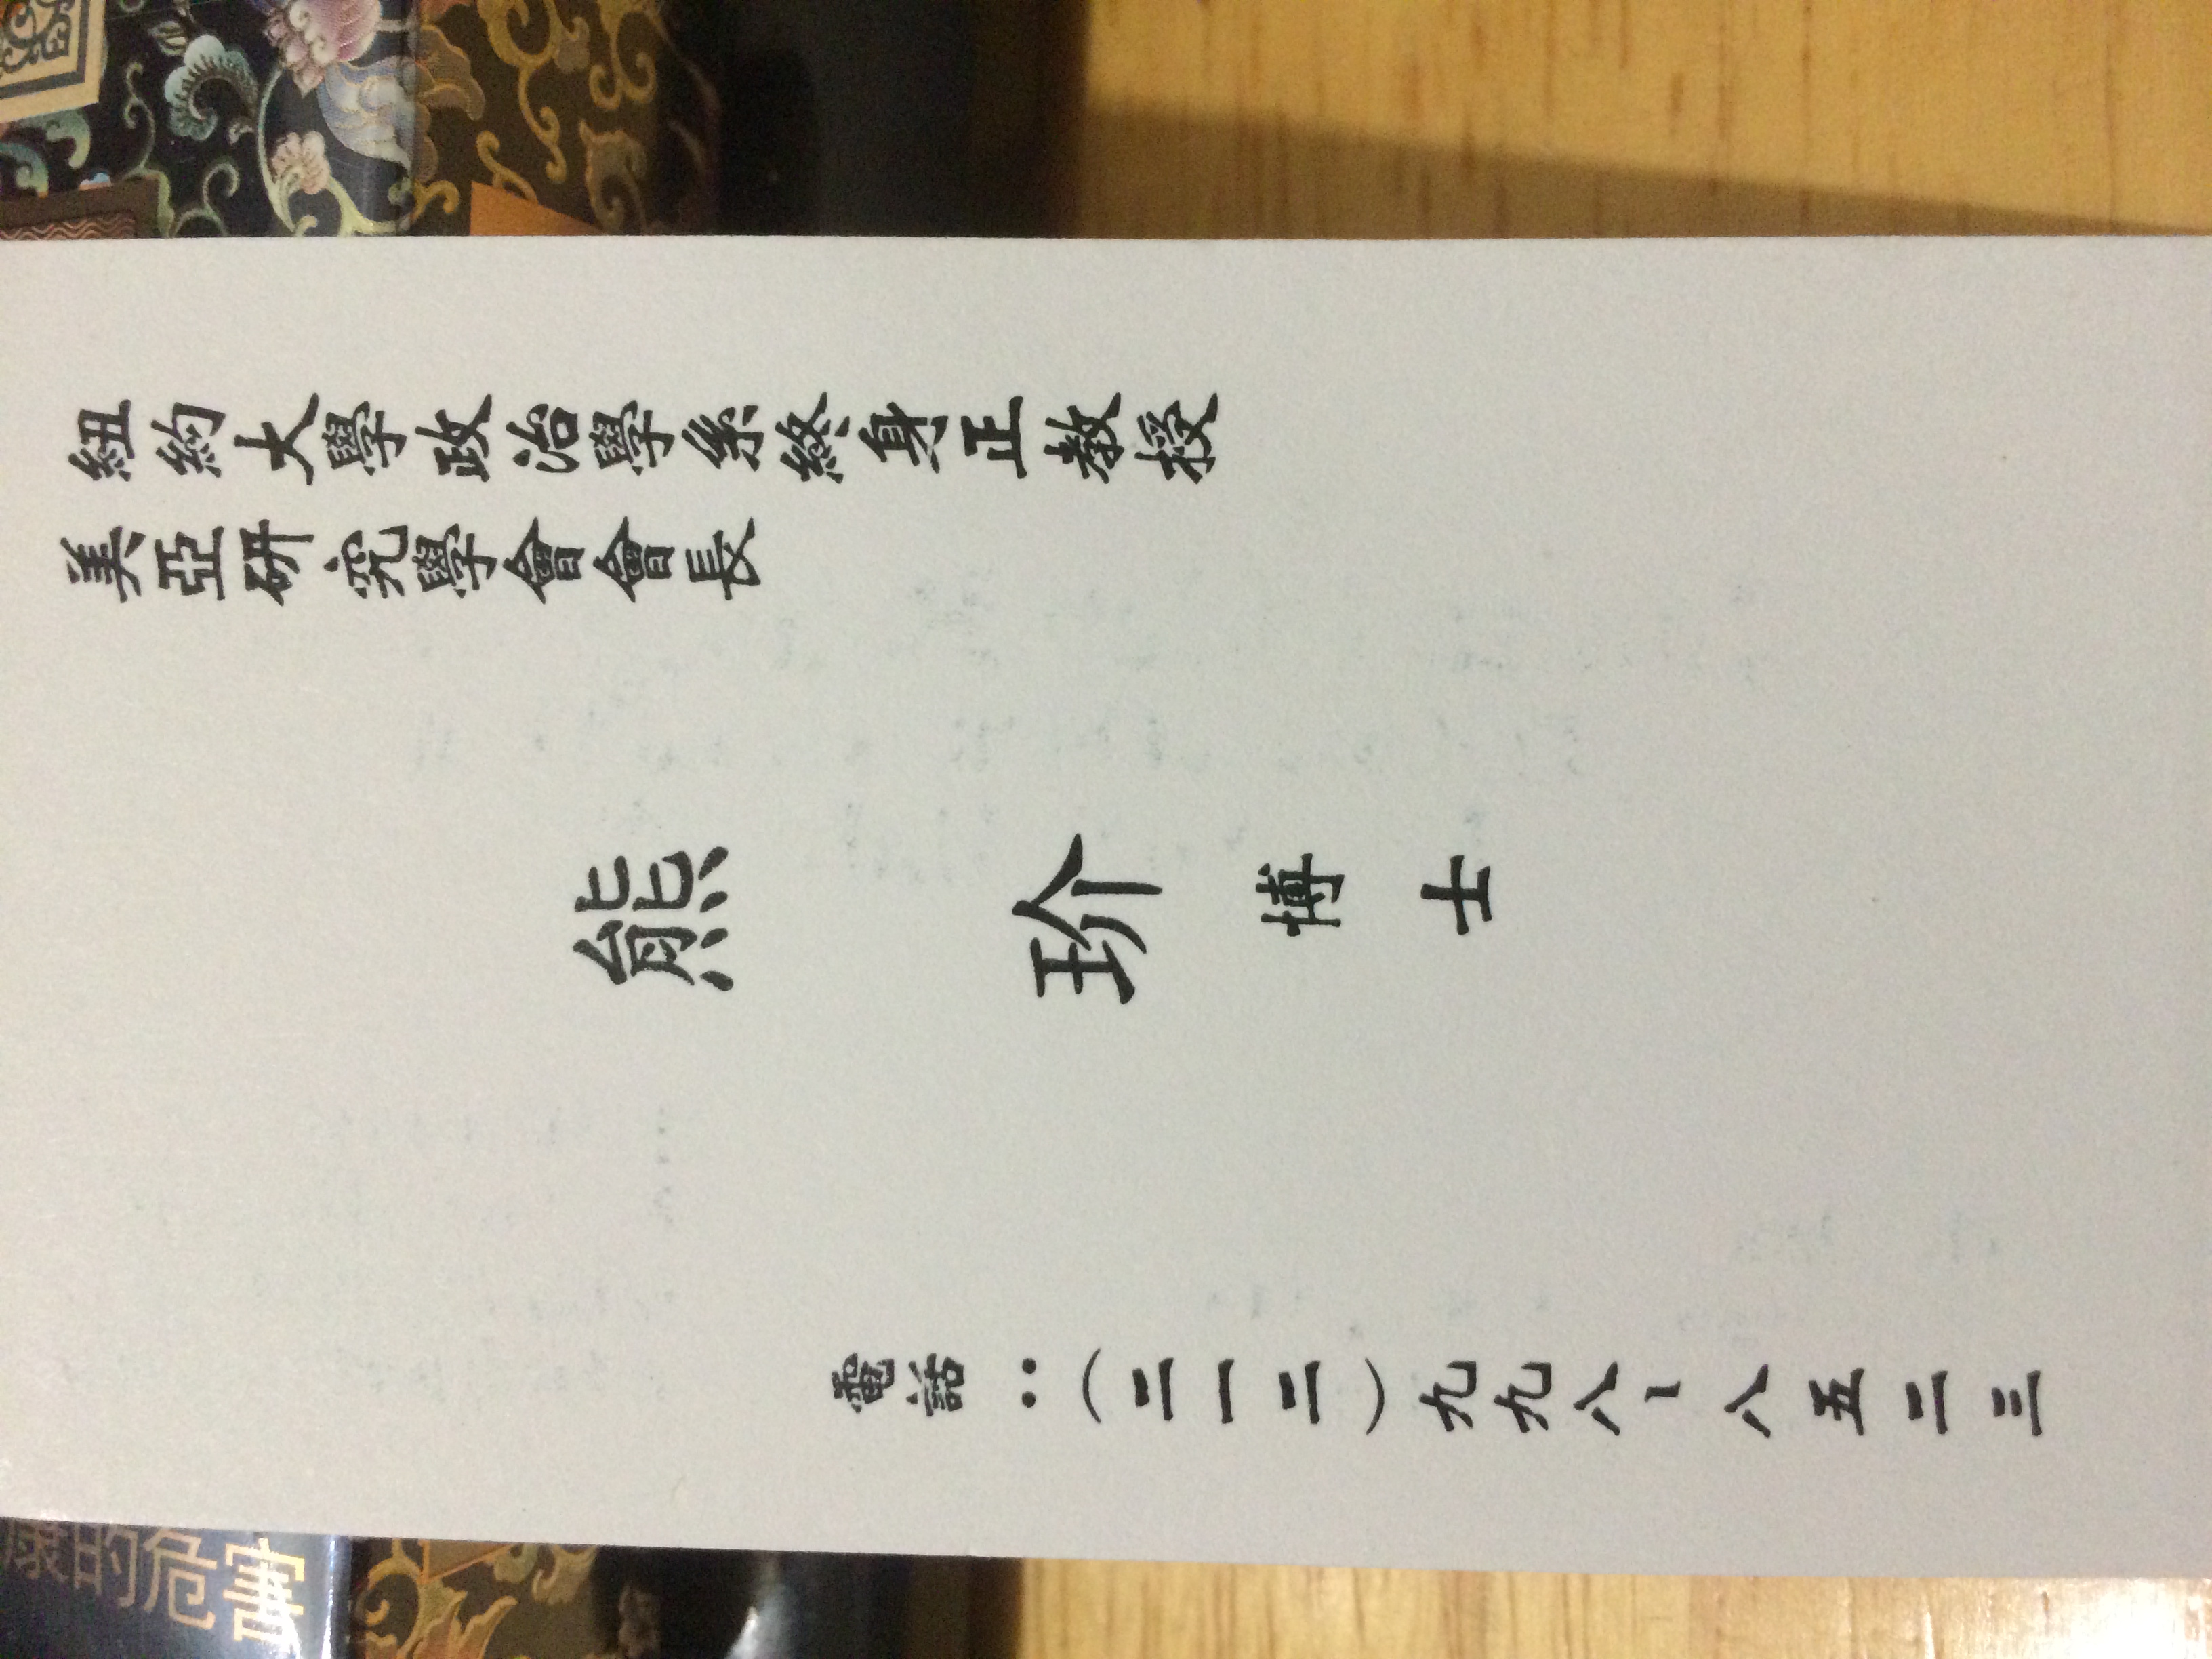 紐約大學政治學系終身正教授
美亞研究學會會長
熊玠博士
電話：（二一二）九九八-八五二三
康的危害